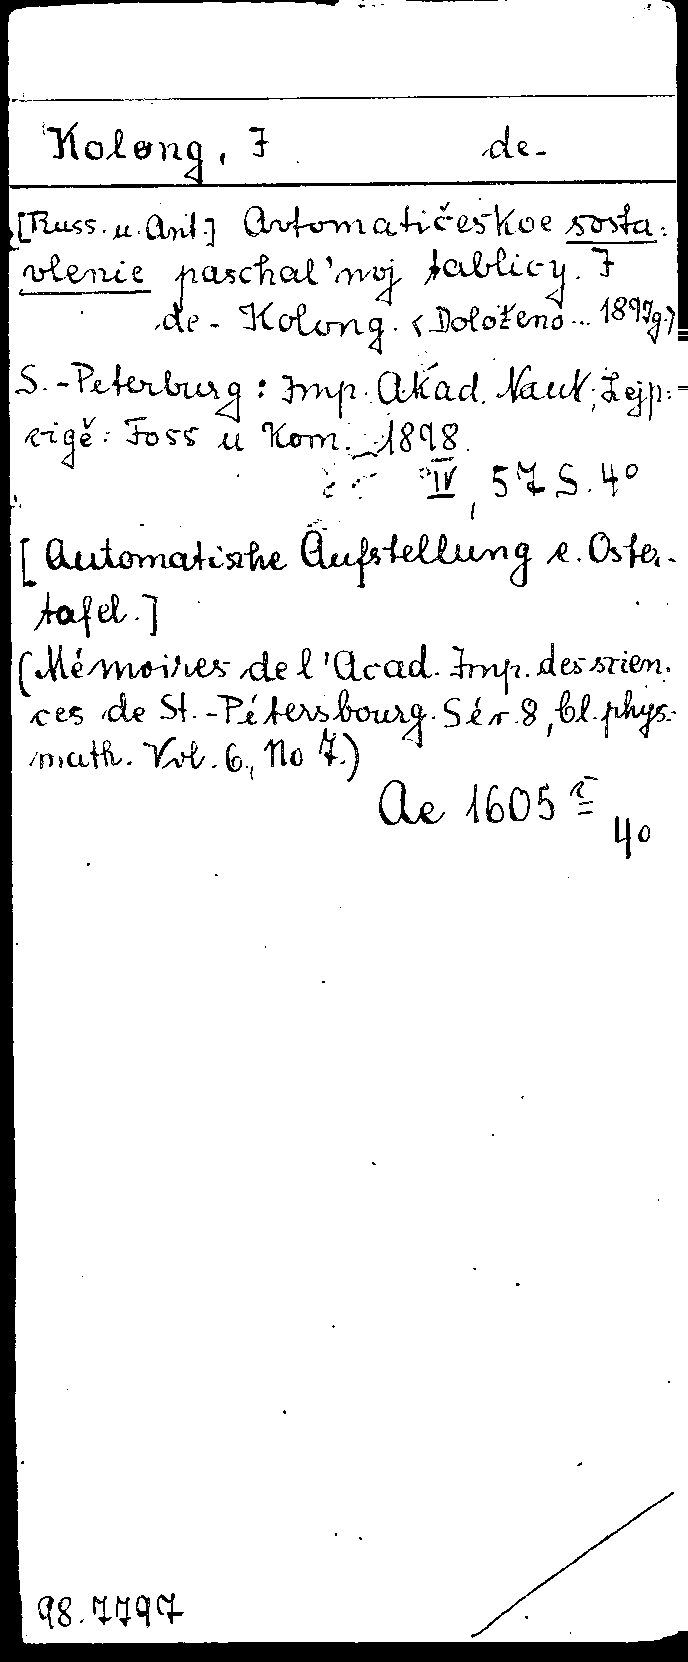 Kolong, I de-
[Russ. u. Ant.] Avtomatičeskoe sosta-
vlenie paschal'noj tablicy. I
de-Kolong. (Doloženo... 1897g.)
S.-Peterburg: Imp. Akad. Nauk; Lejp-
cigě: Foss u Kom. 1898.
IV, 57 S. 4°
[Automatische Aufstellung e. Oster-
tafel.]
(Mémoires de l'Acad. Imp. des scien-
ces de St.-Pétersbourg. Sér. 8, Cl. phys.-
math. Vol. 6, No 7.)
Ae 1605
4°
98.7797